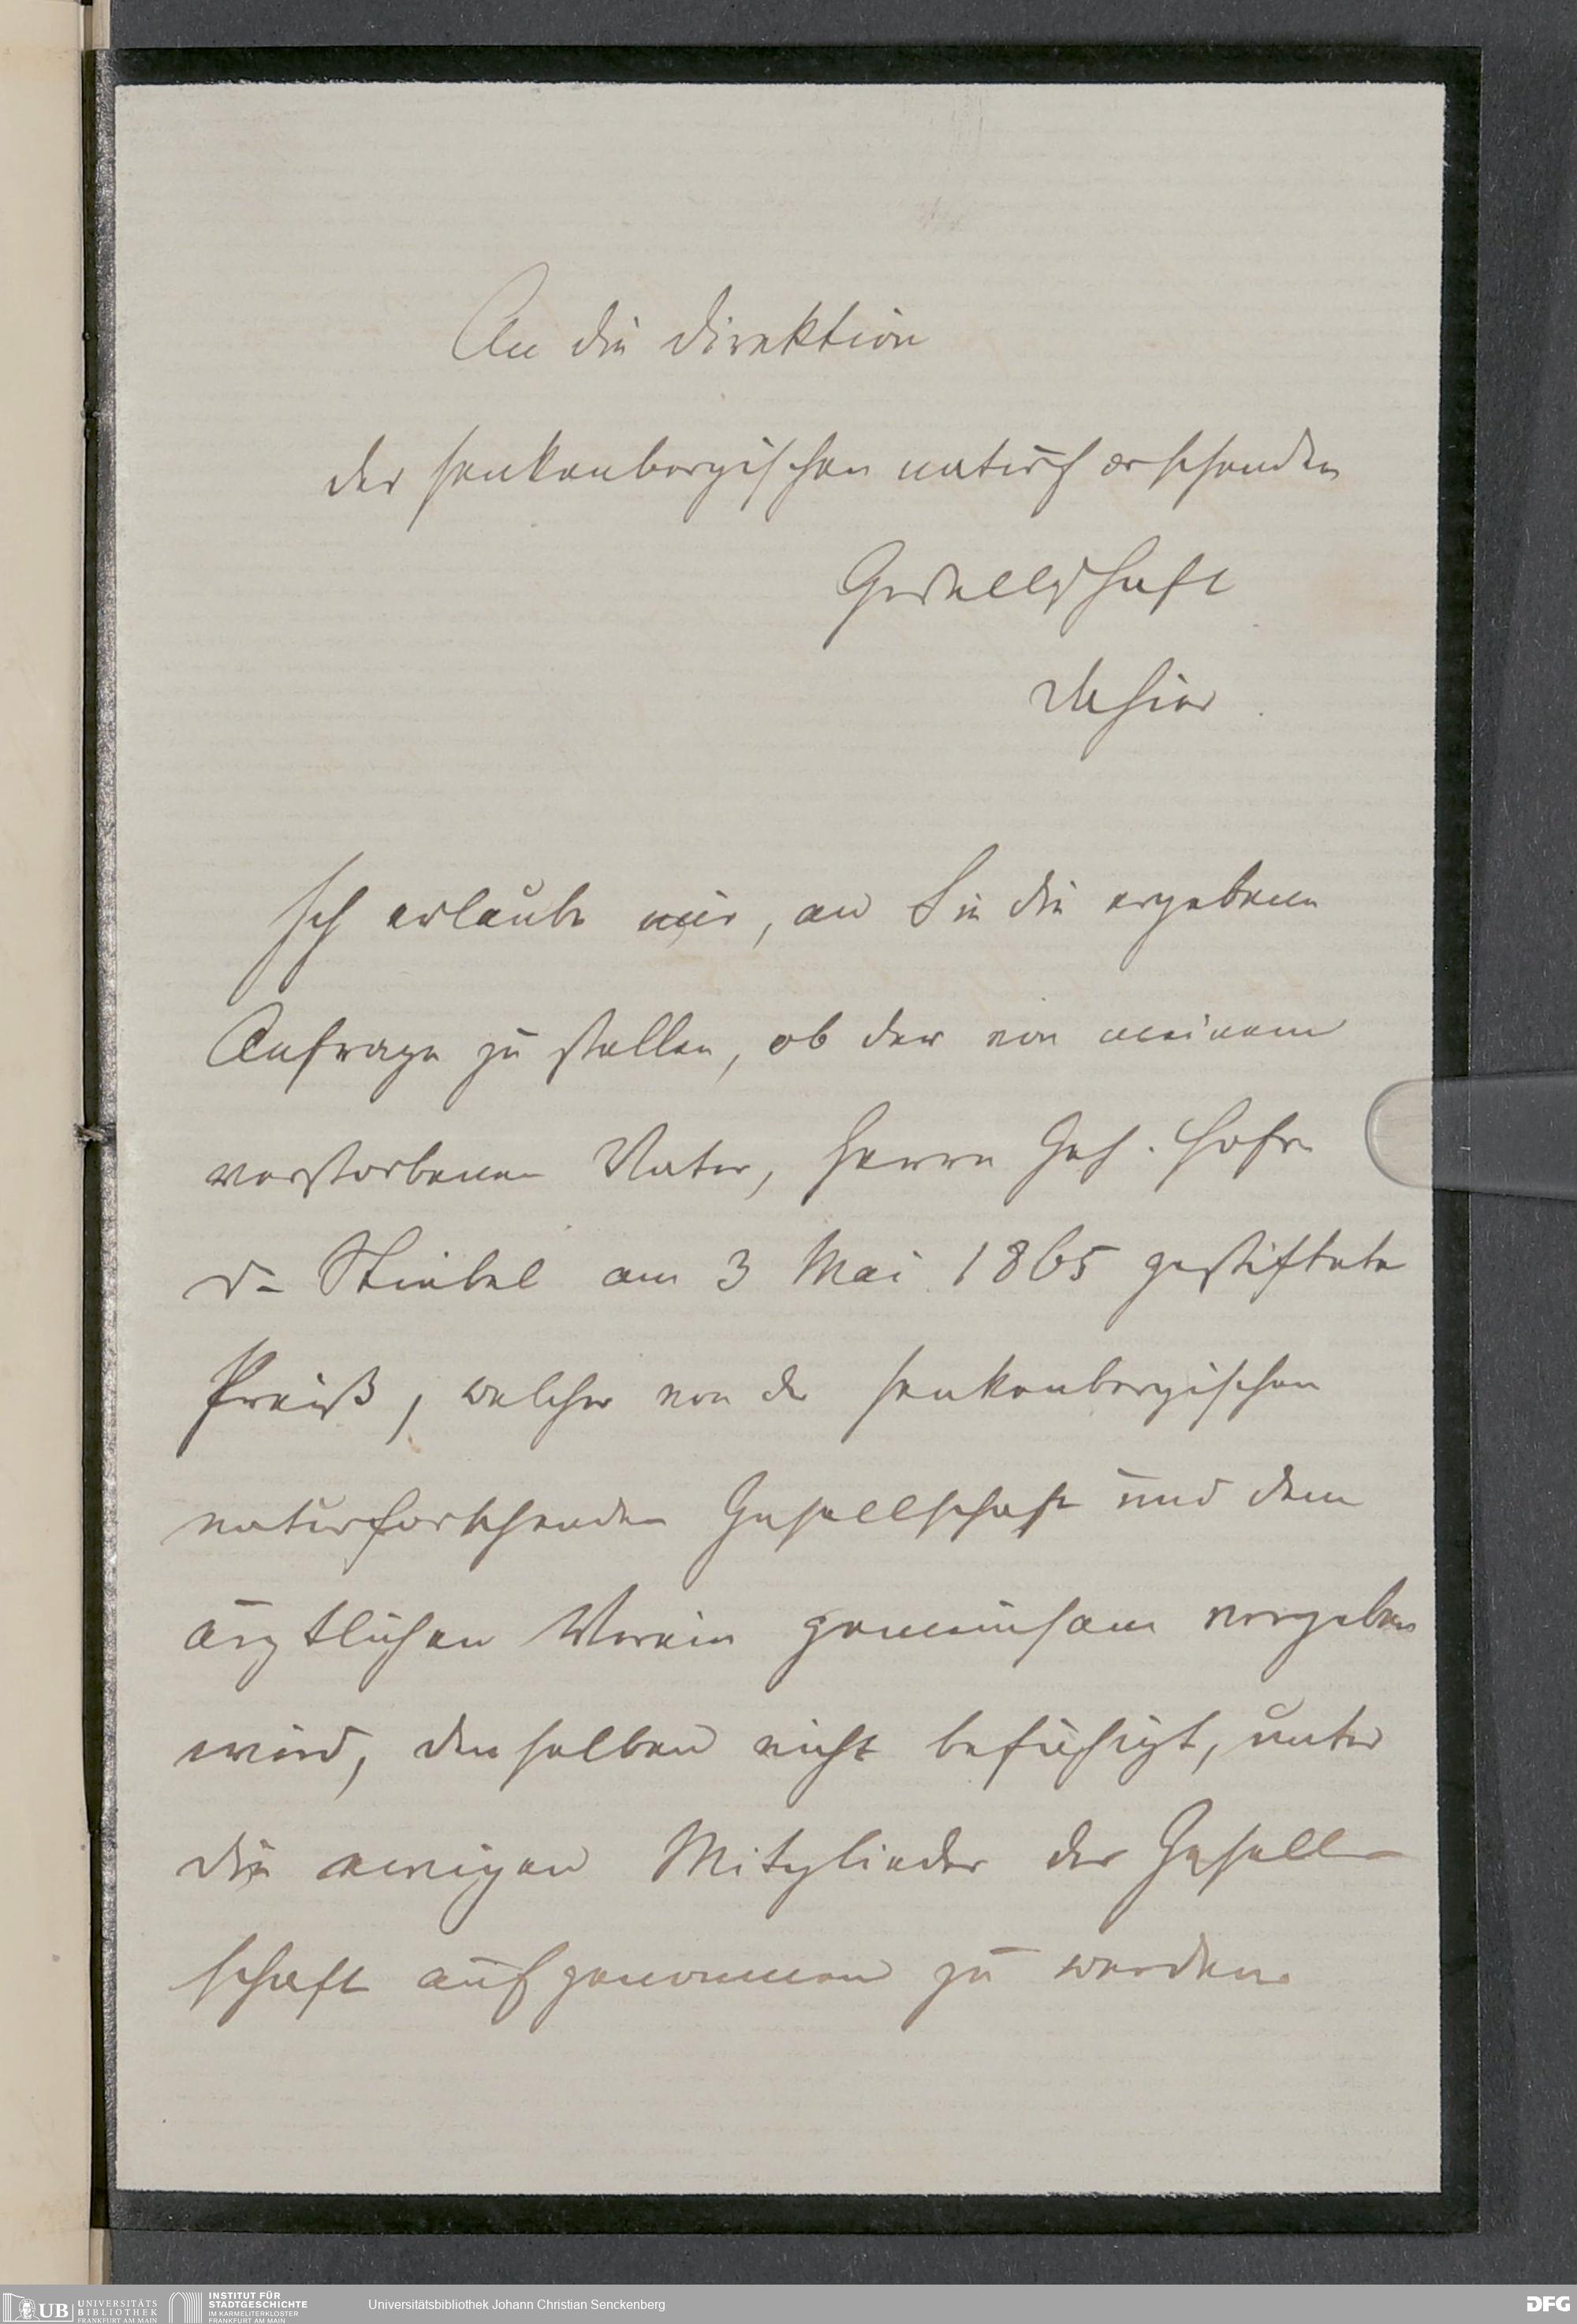 An die Direktion
der senkenbergischen naturforschenden
Gesellschaft
dahier.
Ich erlaube mir, an Sie die ergebene
Anfrage zu stellen, ob der von meinem
verstorbenen Vater, Herrn Geh. Hofr.
Dr Stiebel am 3 Mai 1865 gestiftete
Preiß, welcher von der senkenbergischen
naturforschenden Gesellschaft und dem
ärztlichen Verein gemeinsam vergeben
wird, denselben nicht befähigt, unter
die ewigen Mitglieder der Gesell-
schaft aufgenommen zu werden.
UB UNIVERSITÄTS BIBLIOTHEK FRANKFURT AM MAIN
INSTITUT FÜR STADTGESCHICHTE IM KARMELITERKLOSTER FRANKFURT AM MAIN
Universitätsbibliothek Johann Christian Senckenberg
DFG